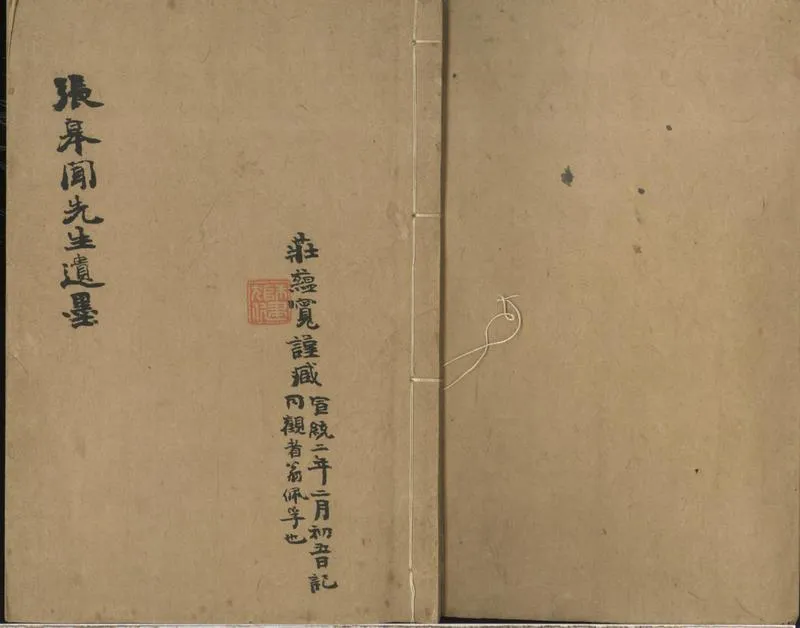 張皋聞先生遺墨
莊蘊寬謹藏
宣統二年二月初五日記
同觀者翁佩孚也